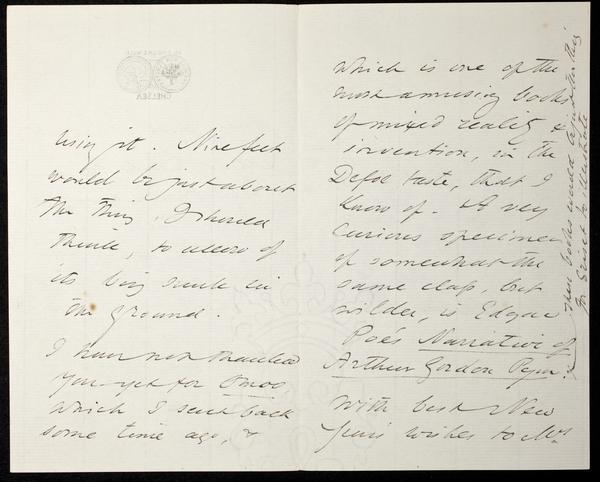 using it. Nine feet
would be just about
the thing, I should
think, to allow of
its being sunk in
the ground.
I have not thanked
you yet for Omoo
which I sent back
some time ago, &
which is one of the
most amusing books
of mixed reality &
invention, in the
Defoe taste, that I
know of. A very
curious specimen
of somewhat the
same class, but
wilder, is Edgar
Poe's Narrative of
Arthur Gordon Pym.
With best New
Year's wishes to Mrs
These books would be just the thing
for Griset to illustrate
CHELSEA